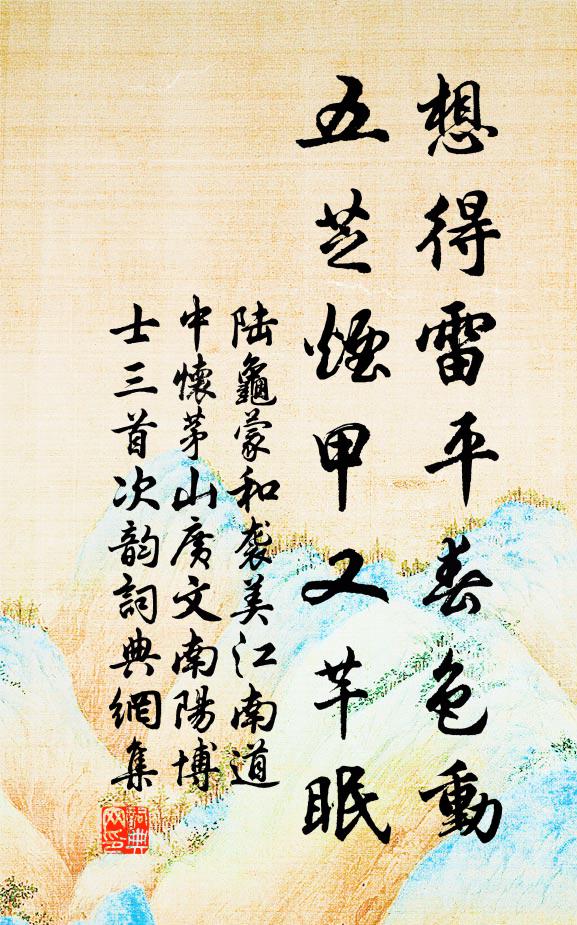 想得雷平春色動
五芝煙甲又芊眠
陆龜蒙和袭美江南道
中懷茅山廣文南陽博
士三首次韵詞典網集
詞典網印